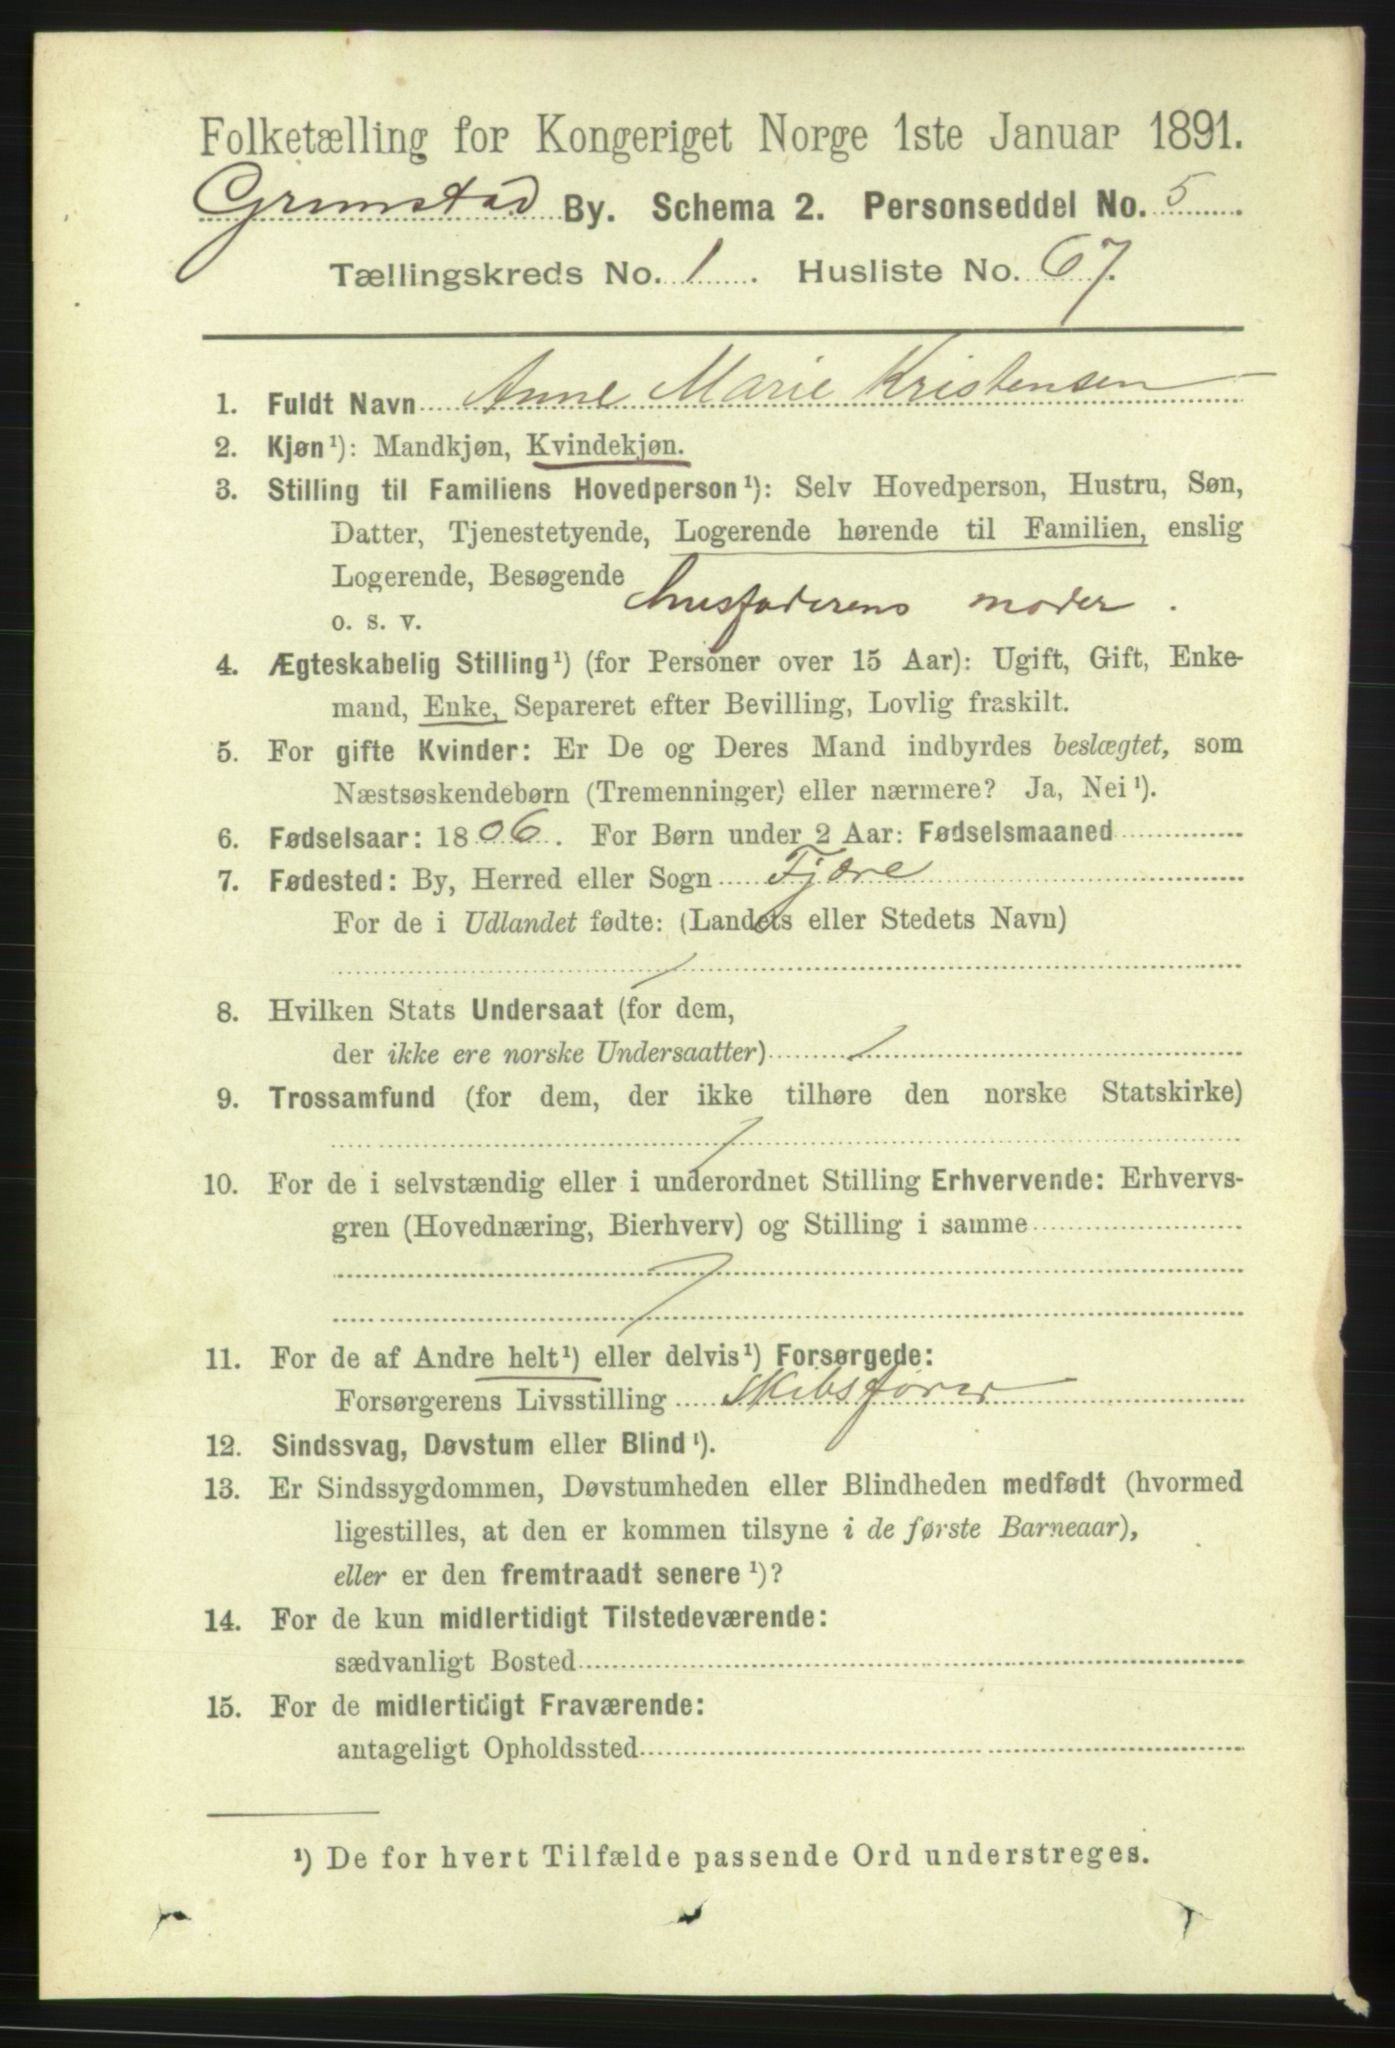 Folketælling for Kongeriget Norge 1ste Januar 1891.
Grimstad By. Schema 2. Personseddel No. 5
Tællingskreds No. 1. Husliste No. 67.
1. Fuldt Navn Anne Marie Kristensen
2. Kjøn¹): Mandkjøn, Kvindekjøn.
3. Stilling til Familiens Hovedperson¹): Selv Hovedperson, Hustru, Søn,
Datter, Tjenestetyende, Logerende hørende til Familien, enslig
Logerende, Besøgende
o. s. v. husfaderens moder.
4. Ægteskabelig Stilling¹) (for Personer over 15 Aar): Ugift, Gift, Enke-
mand, Enke, Separeret efter Bevilling, Lovlig fraskilt.
5. For gifte Kvinder: Er De og Deres Mand indbyrdes beslægtet, som
Næstsøskendebørn (Tremenninger) eller nærmere? Ja, Nei¹).
6. Fødselsaar: 1806. For Børn under 2 Aar: Fødselsmaaned
7. Fødested: By, Herred eller Sogn Fjære
For de i Udlandet fødte: (Landets eller Stedets Navn)
8. Hvilken Stats Undersaat (for dem,
der ikke ere norske Undersaatter)
9. Trossamfund (for dem, der ikke tilhøre den norske Statskirke)
10. For de i selvstændig eller i underordnet Stilling Erhvervende: Erhvervs-
gren (Hovednæring, Bierhverv) og Stilling i samme
11. For de af Andre helt¹) eller delvis¹) Forsørgede:
Forsørgerens Livsstilling Skibsfører
12. Sindssvag, Døvstum eller Blind¹).
13. Er Sindssygdommen, Døvstumheden eller Blindheden medfødt (hvormed
ligestilles, at den er kommen tilsyne i de første Barneaar),
eller er den fremtraadt senere¹)?
14. For de kun midlertidigt Tilstedeværende:
sædvanligt Bosted
15. For de midlertidigt Fraværende:
antageligt Opholdssted
¹) De for hvert Tilfælde passende Ord understreges.